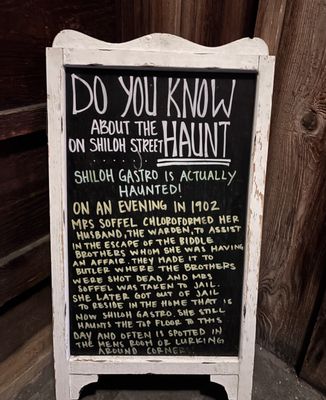 DO YOU KNOW
ABOUT THE
ON SHILOH STREET HAUNT
SHILOH GASTRO IS ACTUALLY
HAUNTED!
ON AN EVENING IN 1902
MRS SOFFEL CHLOROFORMED HER
HUSBAND, THE WARDEN, TO ASSIST
IN THE ESCAPE OF THE BIDDLE
BROTHERS WHOM SHE WAS HAVING
AN AFFAIR. THEY MADE IT TO
BUTLER WHERE THE BROTHERS
WERE SHOT DEAD AND MRS
SOFFEL WAS TAKEN TO JAIL.
SHE LATER GOT OUT OF JAIL
TO RESIDE IN THE HOME THAT IS
NOW SHILOH GASTRO. SHE STILL
HAUNTS THE TOP FLOOR TO THIS
DAY AND IS OFTEN SPOTTED IN
THE MENS ROOM OR LURKING
AROUND CORNERS!